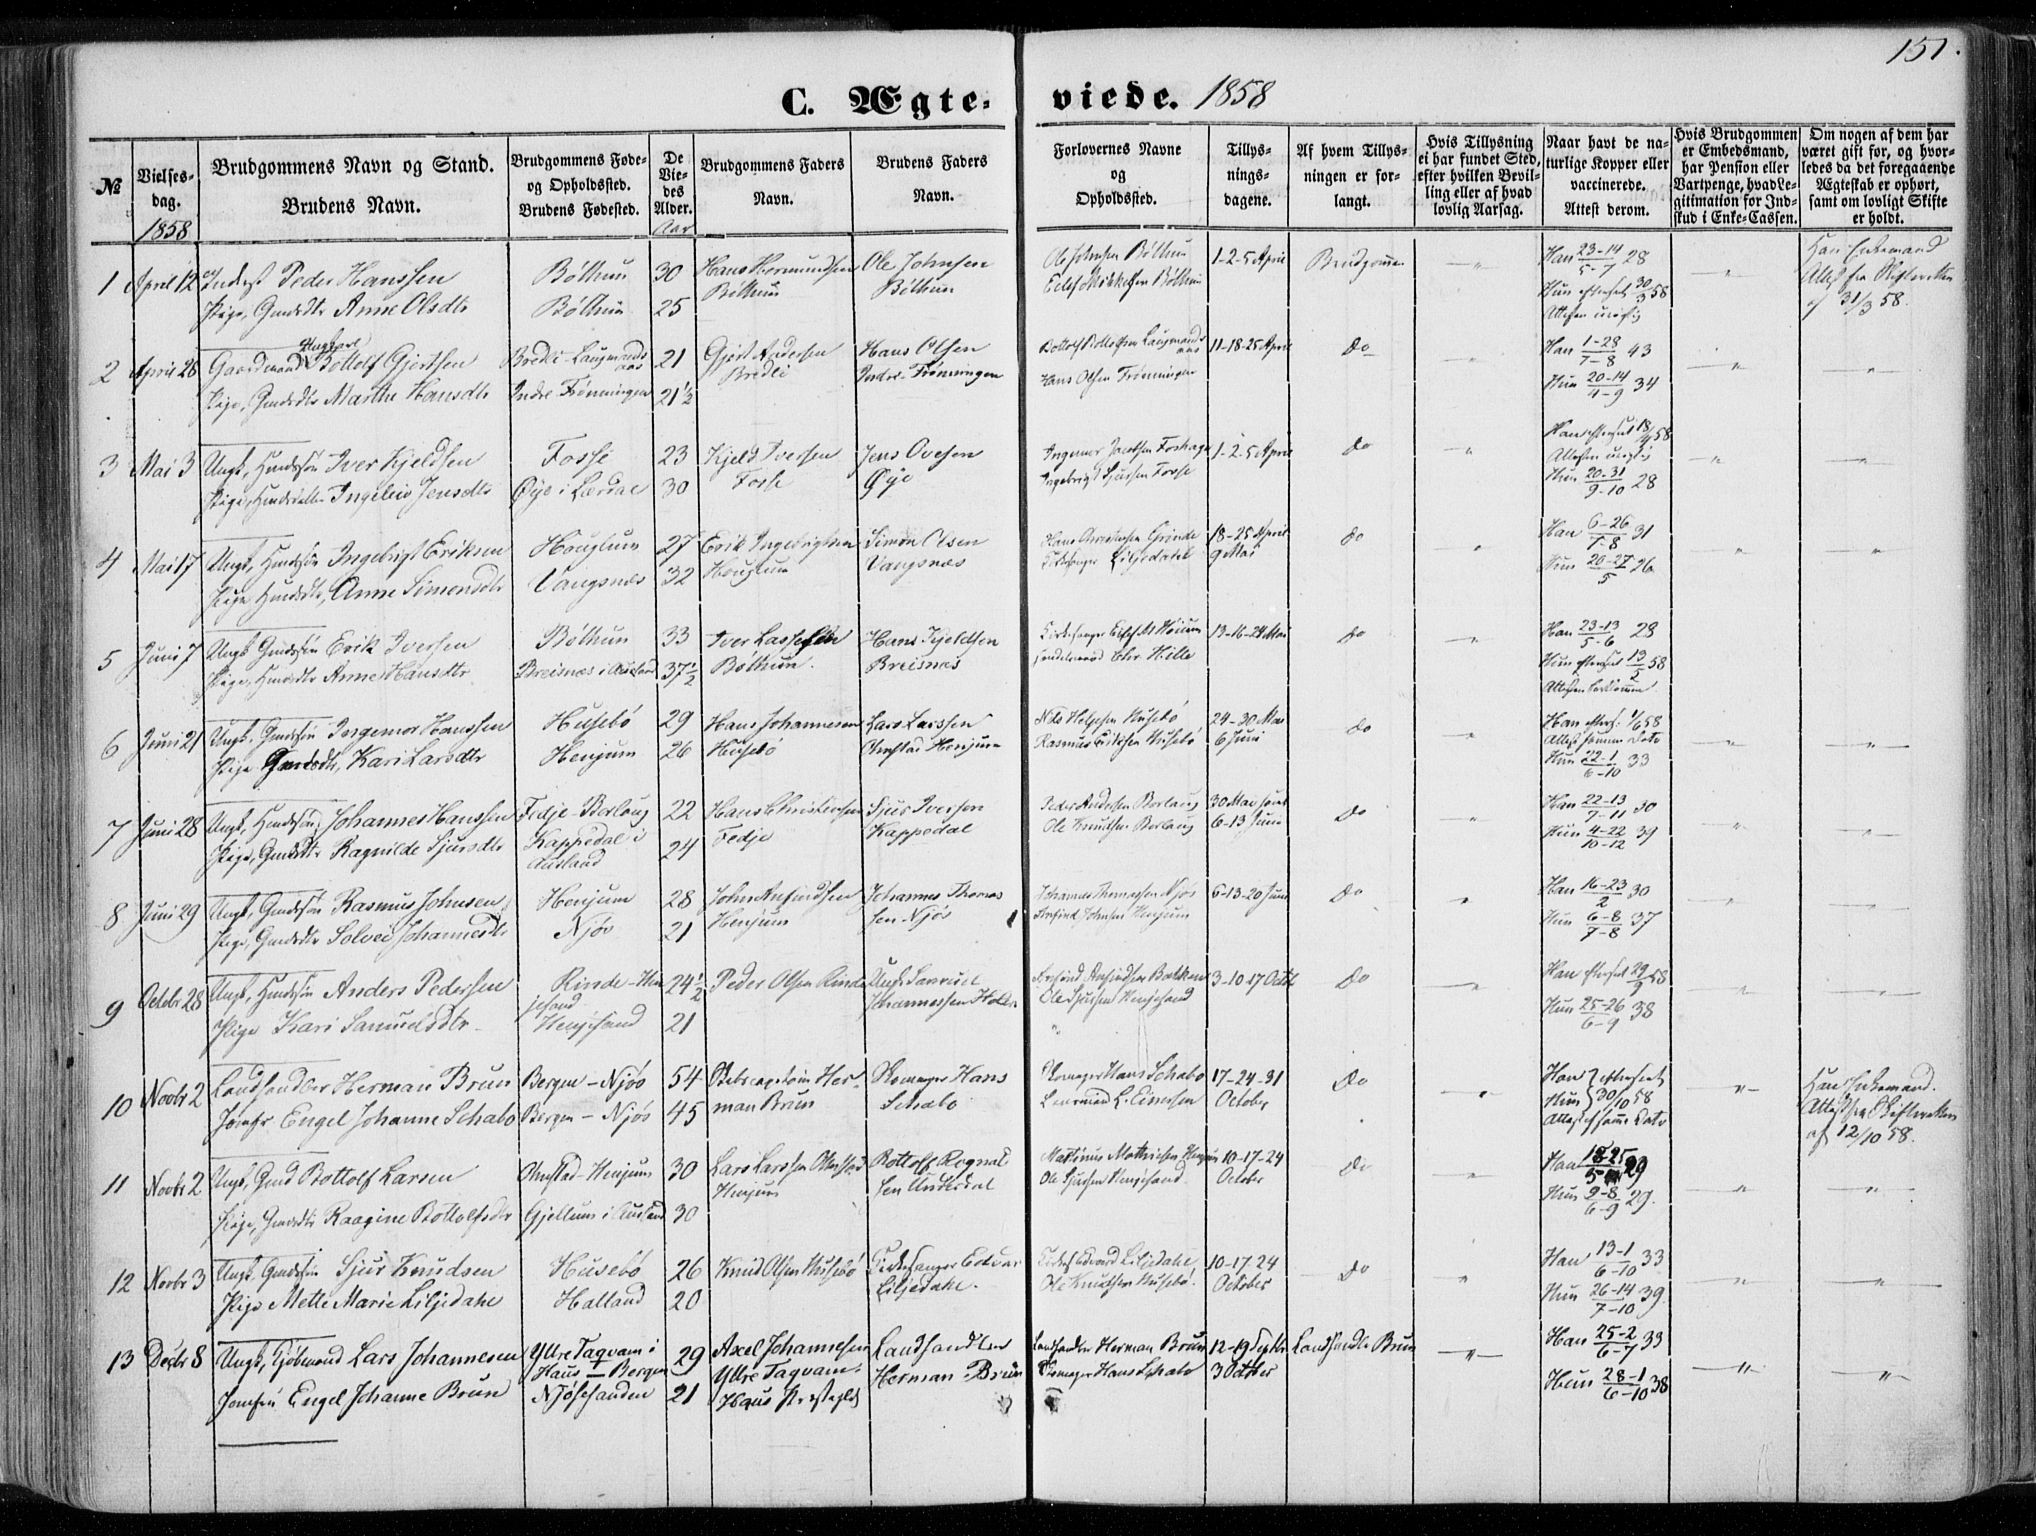 151.
C. Ægte- viede. 1858
№
Vielses-
dag.
1858
Brudgommens Navn og Stand.
Brudens Navn.
Brudgommens Føde-
og Opholdssted.
Brudens Fødested.
De
Vie-
des
Alder.
Aar
Brudgommens Faders
Navn.
Brudens Faders
Navn.
Forlovernes Navne
og
Opholdssted.
Tillys-
nings-
dagene.
Af hvem Tillys-
ningen er for-
langt.
Hvis Tillysning
ei har fundet Sted,
efter hvilken Bevil-
ling eller af hvad
lovlig Aarsag.
Naar havt de na-
turlige Kopper eller
vaccinerede.
Attest derom.
Hvis Brudgommen
er Embedsmand,
har Pension eller
Vartpenge, hvad Le-
gitimation for Ind-
skud i Enke-Cassen.
Om nogen af dem har
været gift før, og hvor-
ledes da det foregaaende
Ægteskab er ophørt,
samt om lovligt Skifte
er holdt.
1 April 12 Inderst Peder Hanssen Bøthun 30 Hans Hermundsen Ole Johnsen Ole Johnsen Bøthun 1-2-5 April Brudgommen Han 23-14/5-7 28 Han Enkemand
Pige, Gmdsdtr Anne Olsdtr Bøthun 25 Bøthun Bøthun Eilef Mikkelsen Bøthun Hun eftersed 30/3 58 Attest fra Skifteretten
af 31/3 58.
2 April 28 Gaardmand Ungkarl Bottolf Gjertsen Bredli-Laugmands 21 Gjert Andersen Hans Olsen Bottolf 11-18-25 April Do Han 1-28/7-8 43
Pige, Gmdsdtr Marthe Hansdtr Indre Frønningen 21½ Bredli Indre-Frønningen Hans Olsen Frønningen Hun 20-14/4-9 34
3 Mai 3 Ungk, Hmdssøn Iver Kjeldsen Fosse 23 Kjeld Iversen Jens Ovesen 1-2-5 April Do Han eftersed 18/4 58
Pige, Hmdsdatter Ingeleiv Jensdtr Øye i Lærdal 30 Fosse Øye Ingebrigt Sjursen Fosse Hun 20-31/9-10 28
4 Mai 17 Ungk, Hmdssøn Ingebrigt Eriksen Houglum 27 Erik Ingebrigtsen Simon Olsen Grinde 18-25 April Do Han 6-26/7-8 31
Pige Hmdsdtr, Anne Simonsdtr Vangsnæs 32 Houglum Vangsnæs Kirkesanger Liljedahl 9 Mai Hun 20-27/5 26
5 Juni 7 Ungk Gmdssøn Erik Iversen Bøthun 33 Iver Lassesen Hans Kjeldsen Kirkesanger 13-16-24 Mai Do Han 23-13/5-6 28
Pige, Hmdsdtr Anne Hansdtr Breisnæs i Aurland 37½ Bøthun. Breisnæs Hille Hun eftersed 13/5 58
6 Juni 21 Ungk, Gmdssøn Ingemor Hanssen Husebø 29 Hans Johannesen Lars Larssen Nils Helgesen Husebø 24-30 Mai Do Han efters. 1/6 58
Pige Gmdsdtr, Kari Larsdtr Henjum 26 Husebø Olmstad Henjum Rasmus Eriksen Husebø 6 Juni Attest samme Dato
Hun 22-1/6-10 33
7 Juni 28 Ungk, Hmdssøn, Johannes Hanssen Fedje-Borlaug 22 Hans Christensen Sjur Iversen Peder Andersen Borlaug 30 Mai samt Do Han 22-13/7-11 30
Pige, Gmdsdtr Ragnilde Sjursdtr Kappedal i 24 Fedje Kappedal Ole Knudsen Borlaug 6-13 Juni Hun 4-22/10-12 39
Aurland
8 Juni 29 Ungk, Gmdssøn Rasmus Johnsen Henjum 28 John Arfindsen Johannes Thomas Johannes Thomassen Njøs 6-13-20 Juni Do Han 16-23/2 30
Pige, Gmdsdtr Solvei Johannesdtr Njøs 21 Henjum sen Njøs Arfind Johnsen Henjum Hun 6-8/7-8 37
9 Octobr 28 Ungk, Hmdssøn Anders Pedersen Rinde-Hen 24½ Peder Olsen Rinde Ungk Samuel 3-10-17 Octob Do Han eftersed
Pige Kari Samuelsdtr. jesand Johannessen Ole Sjursen Henjesand
Henjesand 21 Hun 25-26/6-9 38
10 Novbr 2 Landhandler Herman Brun Bergen-Njøs 54 Skibscaptain Her- Skomager Hans Skomager Hans Schabo 17-24-31 Do Han } eftersed Han Enkemand.
Jomfr Engel Johanne Schabo Bergen-Njøs 45 man Brun Schabo October Hun } 30/10 58 Attest fra Skifteretten
Attest samme Dato af 12/10 58.
11 Novbr 2 Ungk, Gmd Bottolf Larsen Olmstad-Henjum 30 Lars Larssen Olmstad Bottolf Rognal 10-17-24 Do Han 18-25/5 29
Henjum sen Underdal Ole Sjursen Henjesand. October
Pige, Gmdsdtr Raagine Bottolfsdtr Gjellum i Aurland 30 Hun 9-8/6-9 29.
12 Novbr 3 Ungk. Gmdssøn Sjur Knudsen Husebø 26 Knud Olsen Husebø Kirkesanger Edvar Edvard Liljedahl 10-17-24 Do Han 13-1/6-10 33
Pige Mette Marie Liljedahl Hatland 20 Liljedahl. Ole Knudsen Husebø. October Hun 26-14/7-10 39
13 Decbr 8 Ungk, Kjøbmand Lars Johannesen Yttre Taqvam i 29 Axel Johannesen Landhandler Landhandler Herman Brun 12-19 Septbr Landhandler Brun Han 25-2/6-7 33
Haus - Bergen Yttre Taqvam Herman Brun Skomager Hans Schabo 3 October
Jomfru Engel Johanne Brun Njøsesanden 21 Haus Præstegjeld Hun 28-1/6-10 38